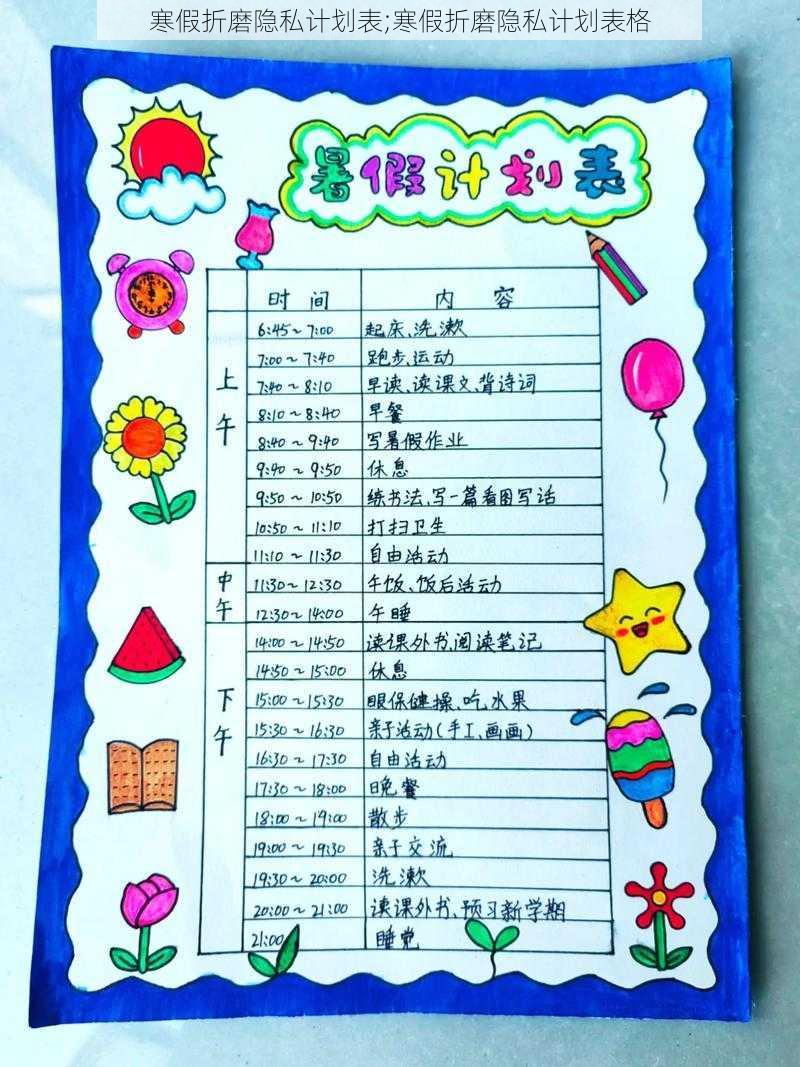 寒假折磨隐私计划表;寒假折磨隐私计划表格
暑假计划表
时 间 内 容
上午
6:45~7:00 起床、洗漱
7:00~7:40 跑步、运动
7:40~8:10 早读、读课文、背诗词
8:10~8:40 早餐
8:40~9:40 写暑假作业
9:40~9:50 休息
9:50~10:50 练书法、写一篇看图写话
10:50~11:10 打扫卫生
11:10~11:30 自由活动
中午
11:30~12:30 午饭、饭后活动
12:30~14:00 午睡
下午
14:00~14:50 读课外书、阅读笔记
14:50~15:00 休息
15:00~15:30 眼保健操、吃水果
15:30~16:30 亲子活动(手工、画画)
16:30~17:30 自由活动
17:30~18:00 晚餐
18:00~19:00 散步
19:00~19:30 亲子交流
19:30~20:00 洗漱
20:00~21:00 读课外书、预习新学期
21:00 睡觉